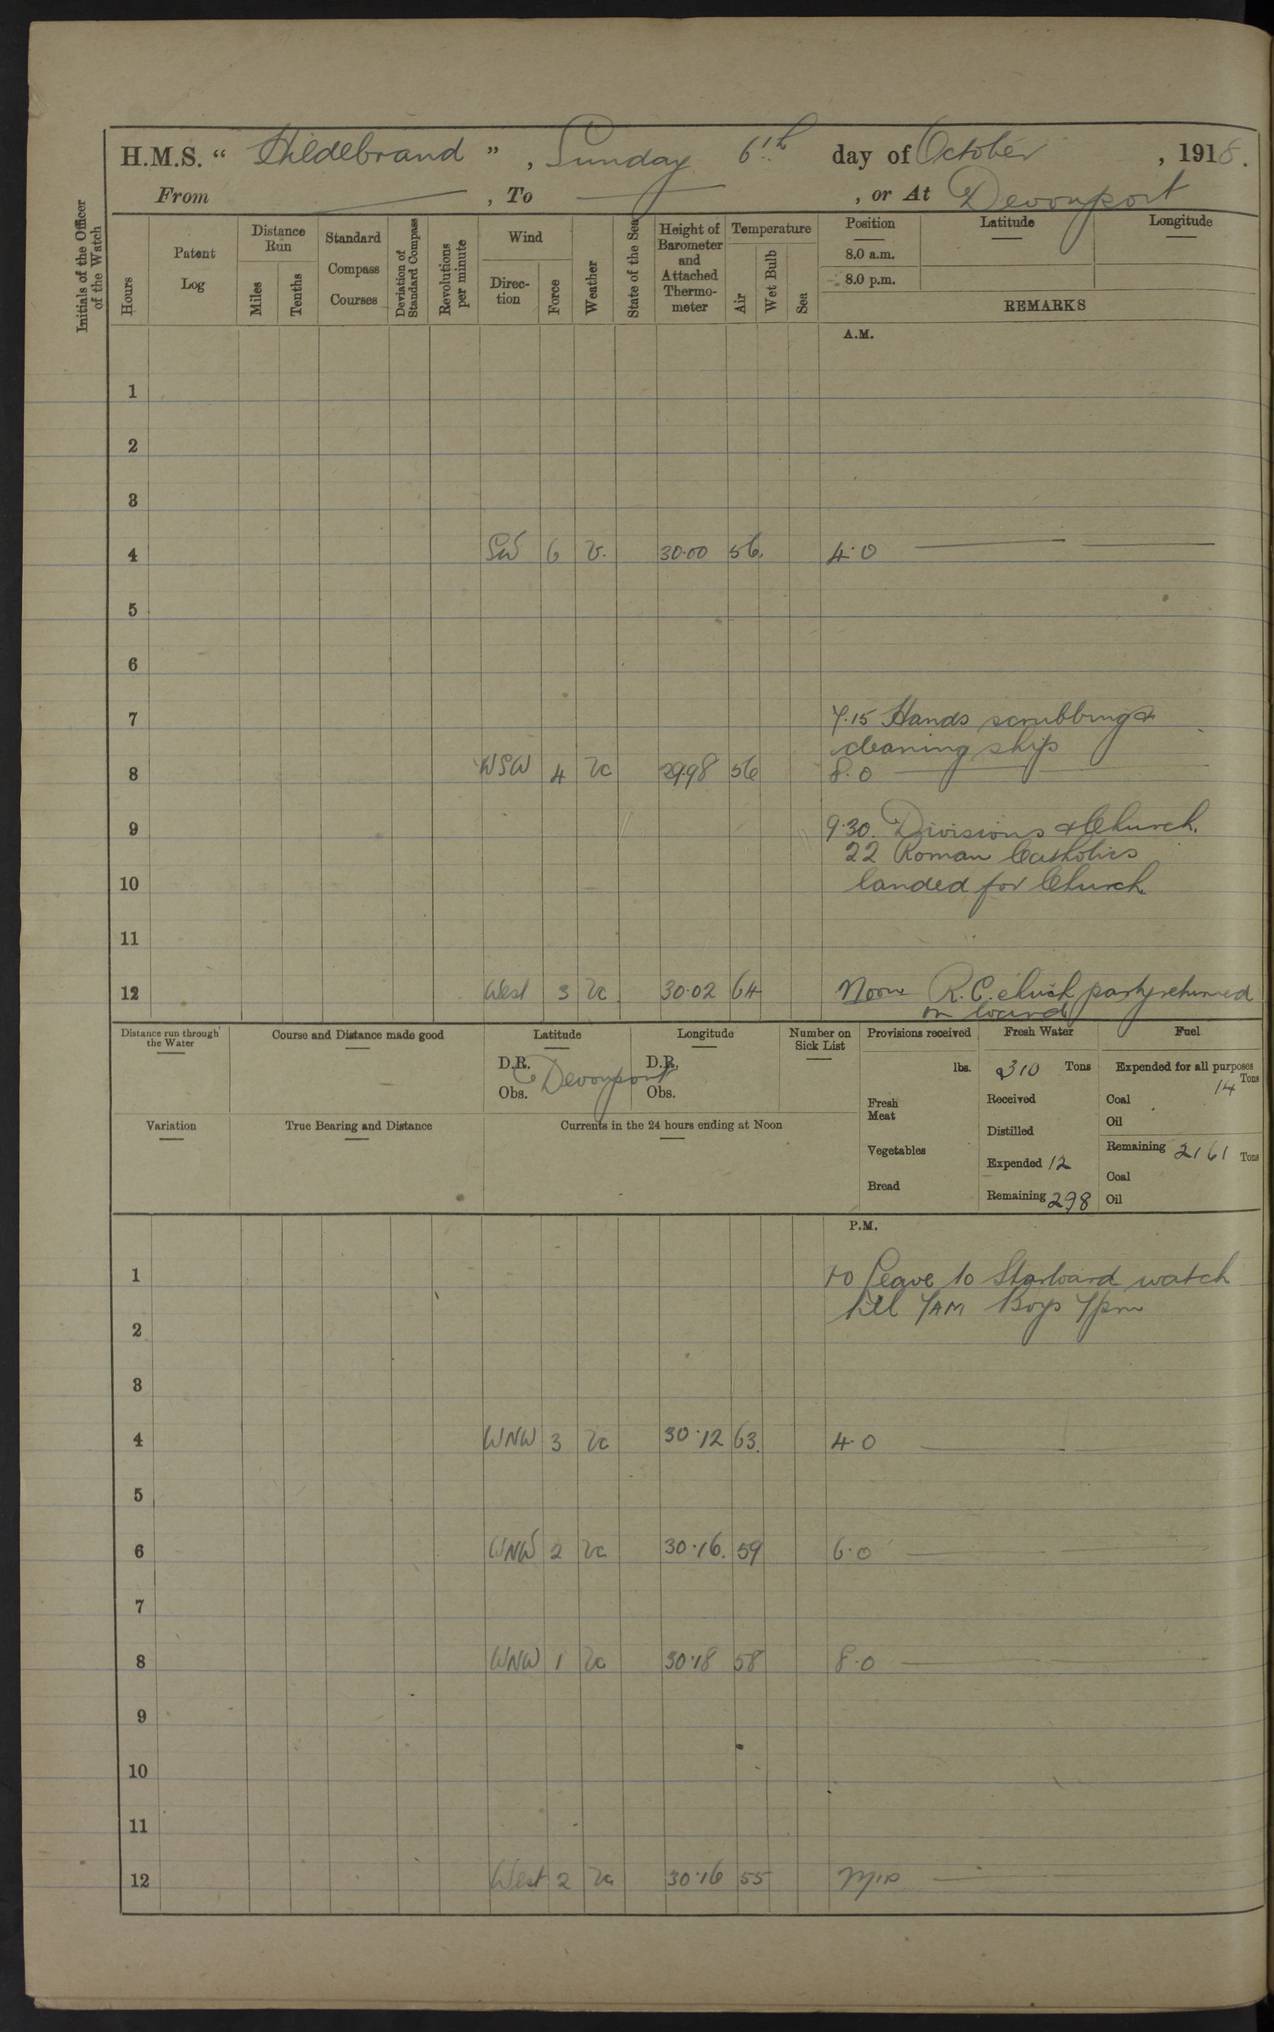 H.M.S. “ Hildebrand ” , Sunday 6th day of October , 1918.
From — , To — , or At Devonport
Initials of the Officer of the Watch
Hours
Patent Log
Distance Run
Miles
Tenths
Standard Compass Courses
Deviation of Standard Compass
Revolutions per minute
Wind
Direction
Force
Weather
State of the Sea
Height of Barometer and Attached Thermometer
Temperature
Air
Wet Bulb
Sea
Position
Latitude
Longitude
8.0 a.m.
8.0 p.m.
REMARKS
A.M.
1
2
3
4 SW 6 56. 30.00 4.0
5
6
7 7.15 Hands scrubbing &
cleaning ship
8 WSW 4 bc 29.98 56 8.0
9 9.30. Divisions & Church.
22 Roman Catholics
10 landed for Church.
11
12 West 3 bc 30.02 64 Noon R.C. church party returned
on board
Distance run through the Water
Course and Distance made good
Latitude
D.R. Devonport
Obs.
Longitude
D.R.
Obs.
Number on Sick List
Provisions received
lbs.
Fresh Meat
Vegetables
Bread
Fresh Water
310 Tons
Received
Distilled
Expended 12
Remaining 298
Fuel
Expended for all purposes
14 Tons
Coal
Oil
Remaining 2161 Tons
Coal
Oil
Variation
True Bearing and Distance
Currents in the 24 hours ending at Noon
P.M.
1 1.0 Leave to Starboard watch
till 7AM Boys 7pm
2
3
4 WNW 3 bc 30.12 63. 4.0
5
6 WNW 2 bc 30.16. 59 6.0
7
8 WNW 1 bc 30.18 58 8.0
9
10
11
12 West 2 bc 30.16 55 Mid